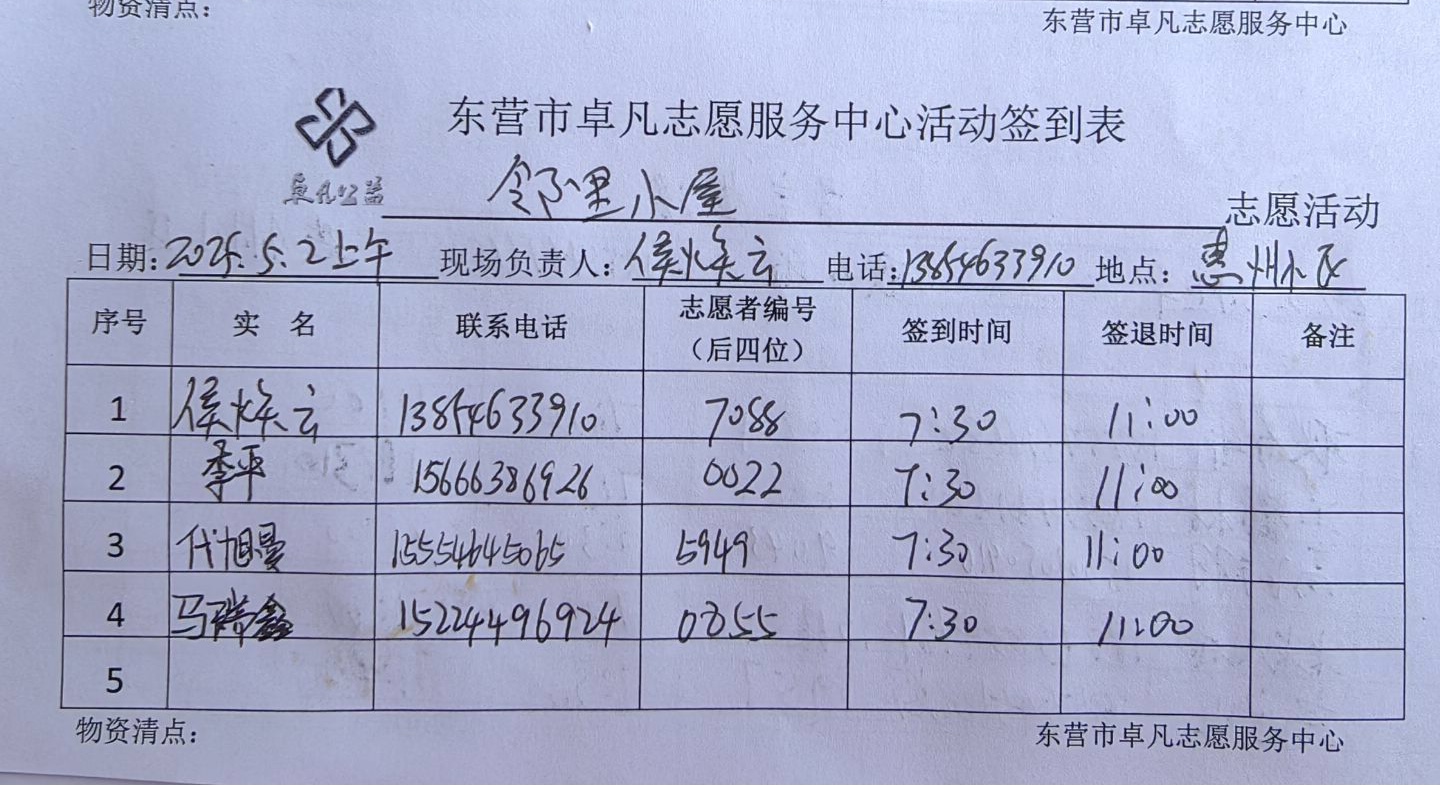 物资清点：
东营市卓凡志愿服务中心
东营市卓凡志愿服务中心活动签到表
卓凡公益
邻里小屋 志愿活动
日期：2025.5.2上午 现场负责人：侯焕云 电话：13854633910 地点：惠州小区
序号 实 名 联系电话 志愿者编号（后四位） 签到时间 签退时间 备注
1 侯焕云 13854633910 7088 7:30 11:00
2 季平 15666386926 0022 7:30 11:00
3 代旭曼 15554645065 5949 7:30 11:00
4 马瑞鑫 15224496924 0855 7:30 11:00
5
物资清点：
东营市卓凡志愿服务中心